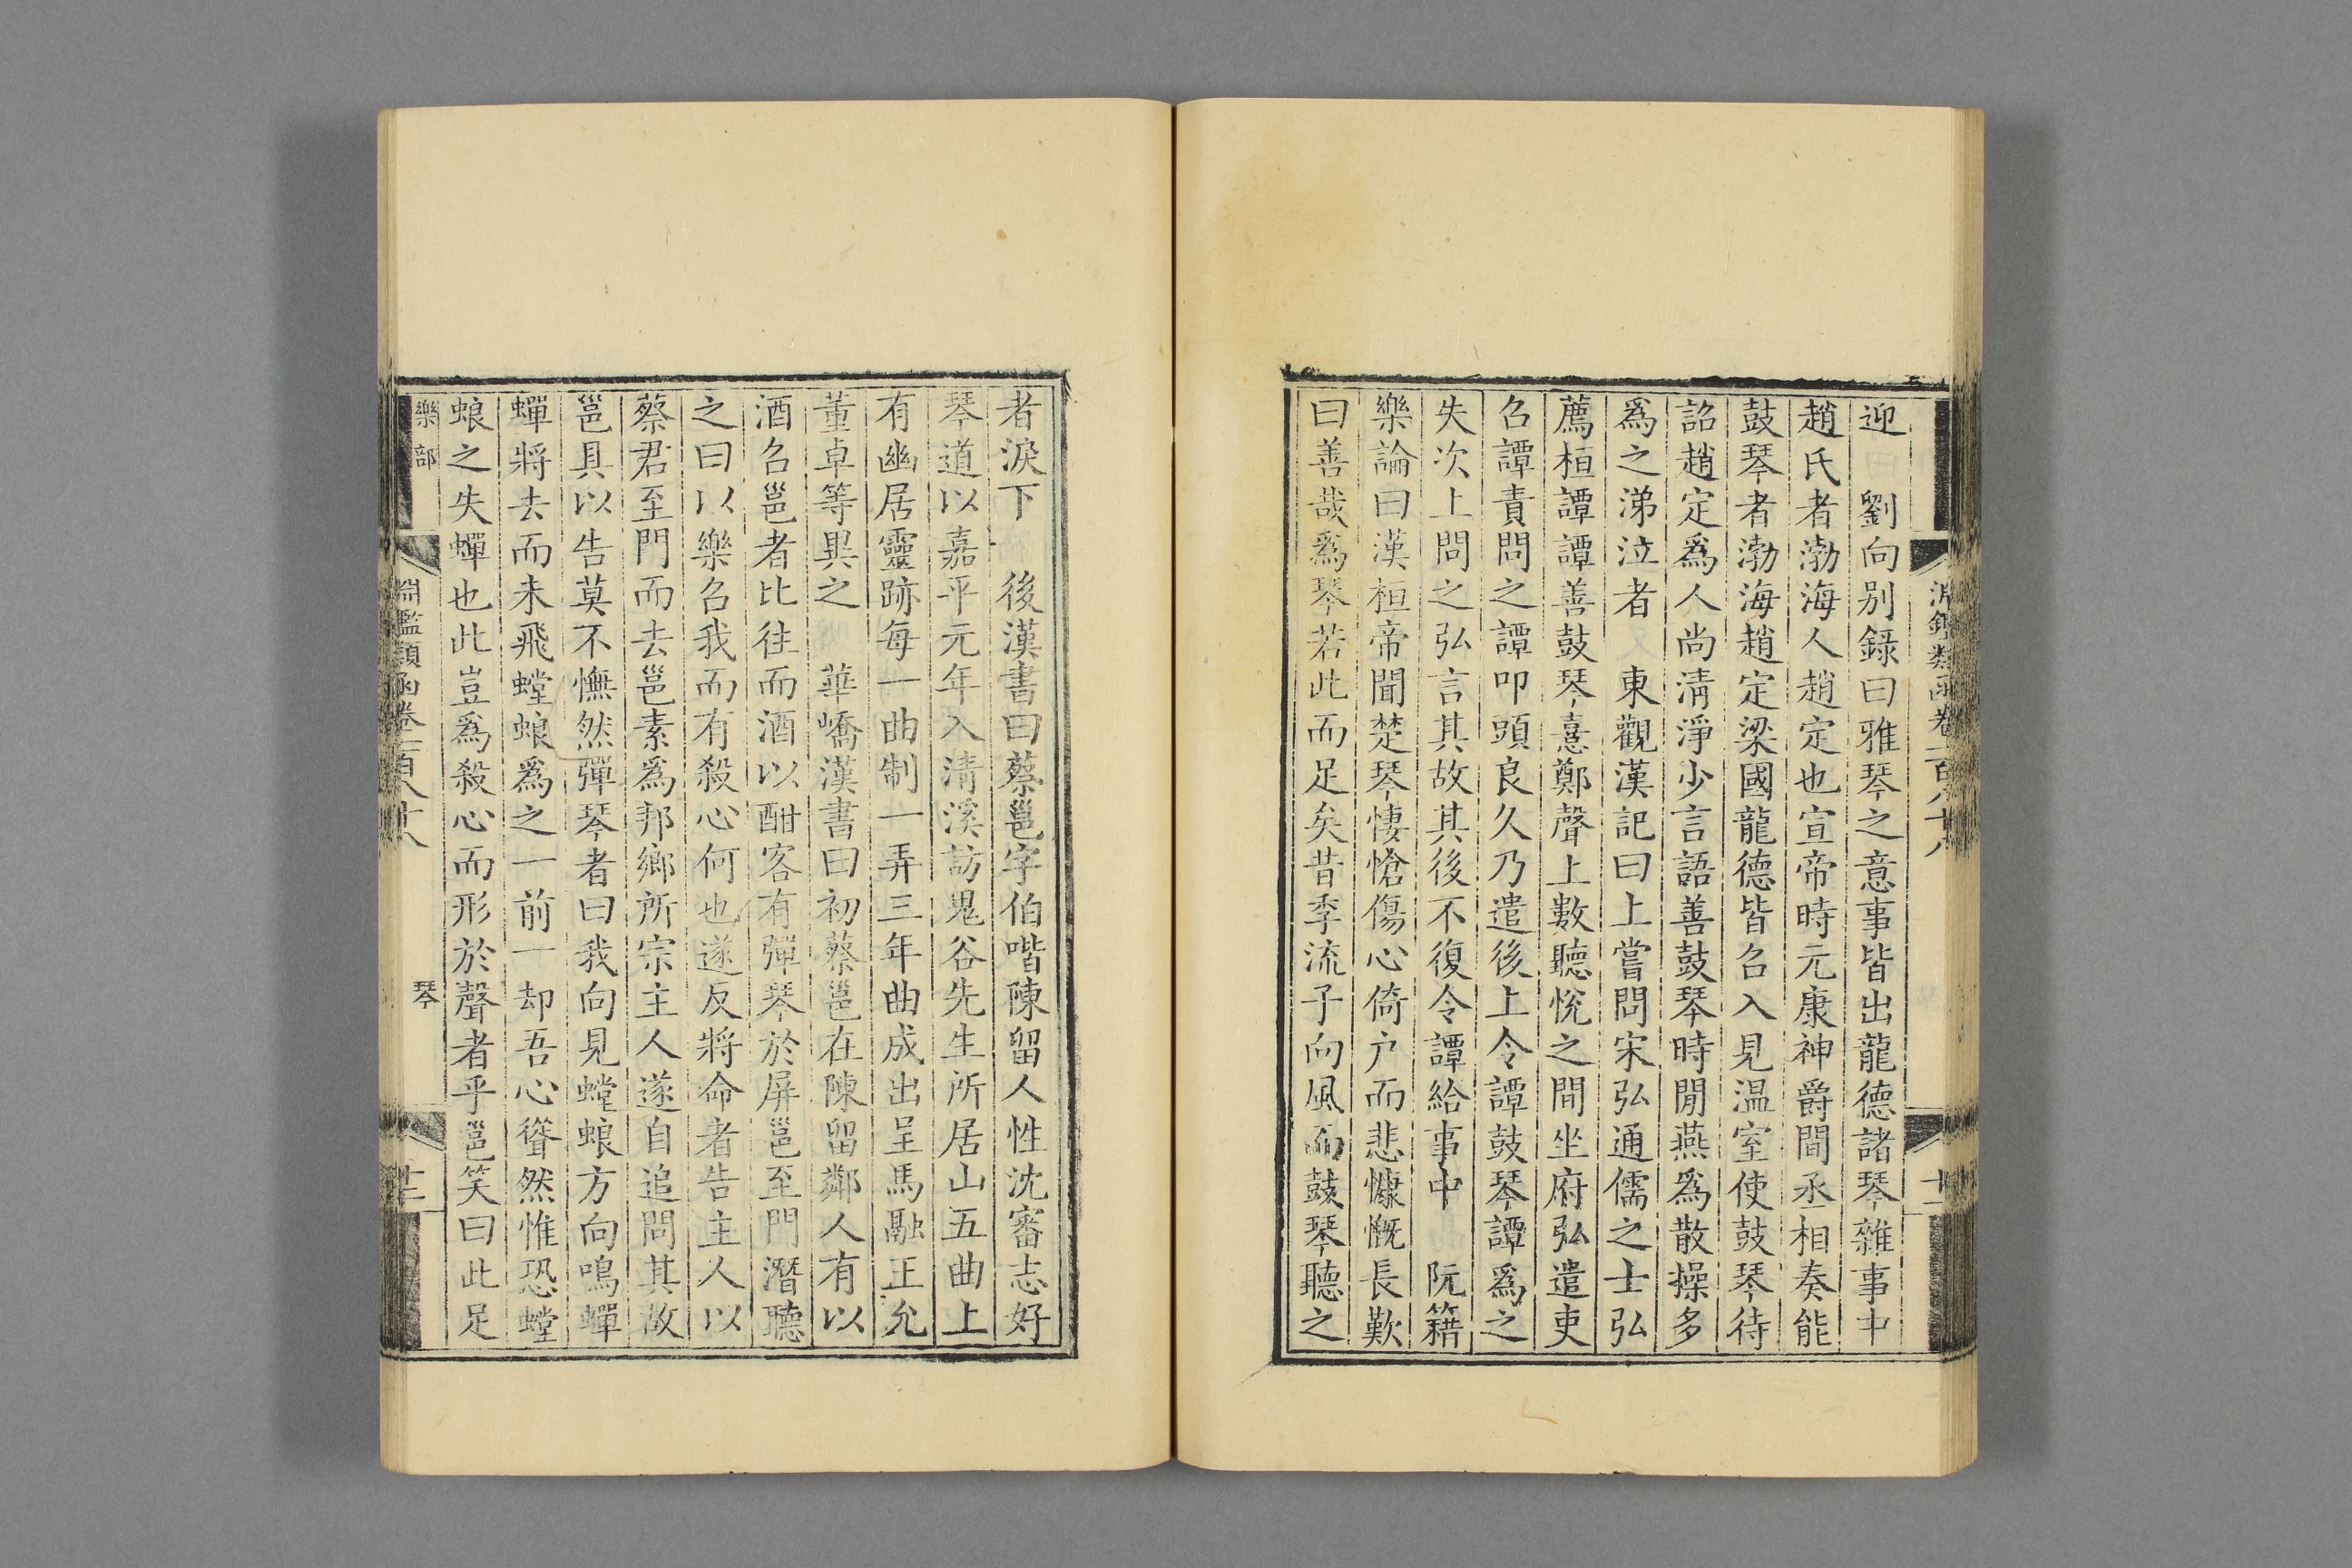 迎　劉向別錄曰雅琴之意事皆出龍德諸琴雜事中
趙氏者渤海人趙定也宣帝時元康神爵間丞相奏能
鼓琴者渤海趙定梁國龍德皆召入見温室使鼓琴待
詔趙定爲人尚清淨少言語善鼓琴時閒燕爲散操多
爲之涕泣者　東觀漢記曰上嘗問宋弘通儒之士弘
薦桓譚譚善鼓琴憙鄭聲上數聽悅之間坐府弘遣吏
召譚責問之譚叩頭良久乃遣後上令譚鼓琴譚爲之
失次上問之弘言其故其後不復令譚給事中　阮籍
樂論曰漢桓帝聞楚琴悽愴傷心倚户而悲慷慨長歎
曰善哉爲琴若此而足矣昔季流子向風而鼓琴聽之
者淚下　後漢書曰蔡邕字伯喈陳留人性沈審志好
琴道以嘉平元年入清溪訪鬼谷先生所居山五曲上
有幽居靈跡每一曲制一弄三年曲成出呈馬融王允
董卓等異之　華嶠漢書曰初蔡邕在陳留鄰人有以
酒召邕者比往而酒以酣客有彈琴於屏邕至門潛聽
之曰以樂召我而有殺心何也遂反將命者告主人以
蔡君至門而去邕素爲邦鄉所宗主人遂自追問其故
邕具以告莫不憮然彈琴者曰我向見螳蜋方向鳴蟬
蟬將去而未飛螳蜋爲之一前一却吾心聳然惟恐螳
蜋之失蟬也此豈爲殺心而形於聲者乎邕笑曰此足
樂部　淵鑑類函卷一百八十八　琴